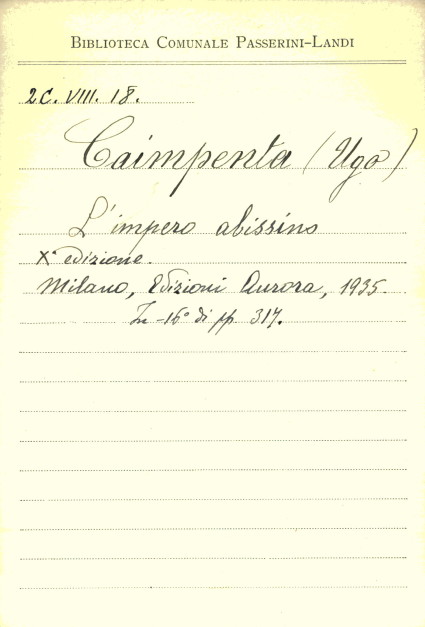 BIBLIOTECA COMUNALE PASSERINI-LANDI
2C. VIII. 18.
Caimpenta (Ugo)
L'impero abissino
Xª edizione.
Milano, Edizioni Aurora, 1935.
In-16° di pp. 317.